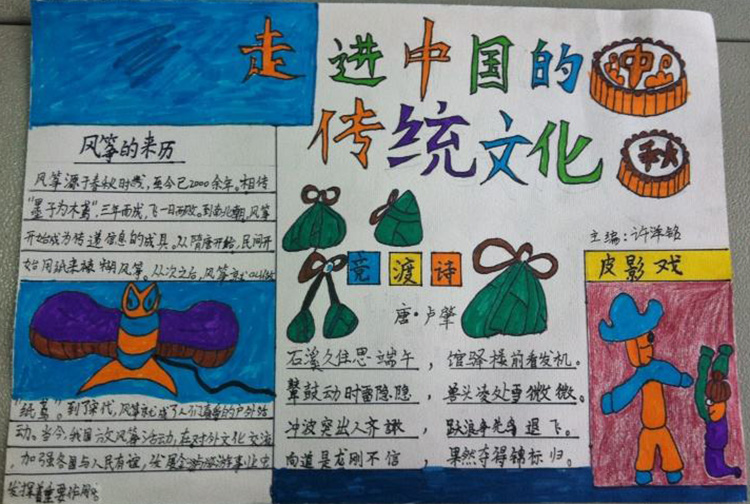 走进中国的
传统文化
中
秋
主编:许泽铭
风筝的来历
风筝源于春秋时代,至今已2000余年。相传
"墨子为木鸢",三年而成,飞一日而败。到南北朝,风筝
开始成为传递信息的工具。从隋唐开始,民间开
始用纸来裱糊风筝。从次之后,风筝
"纸鸢"。到了宋代,风筝就成了人们喜爱的户外活
动。当今,我国放风筝活动,在对外文化交流,
加强各国与人民友谊,发展旅游事业中
发挥着重要作用。
竞渡诗
唐·卢肇
石溪久住思端午,馆驿楼前看发机。
鼙鼓动时雷隐隐,兽头凌处雪微微。
冲波突出人齐譀,跃浪争先鸟退飞。
向道是龙刚不信,果然夺得锦标归。
皮影戏